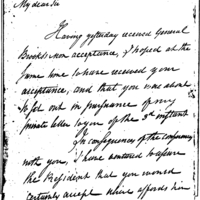 My dear Sir
Having yesterday received General
Brooks's non acceptance, I hoped at the
same time to have received your
acceptance, and that you was about
to set out in pursuance of my
private letter to you of the 3d instant
In consequence of the conformity
with you, I have ventured to assure
the President that you would
certainly accept which affords him